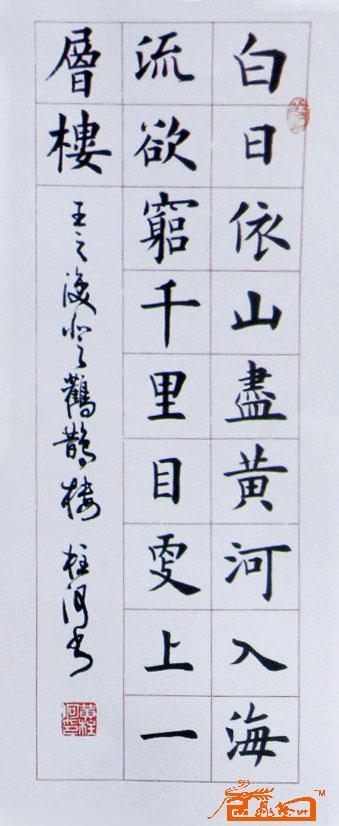 白日依山盡黄河入海
流欲窮千里目更上一
層樓
王之渙登鸛鵲樓 柱河书
TM